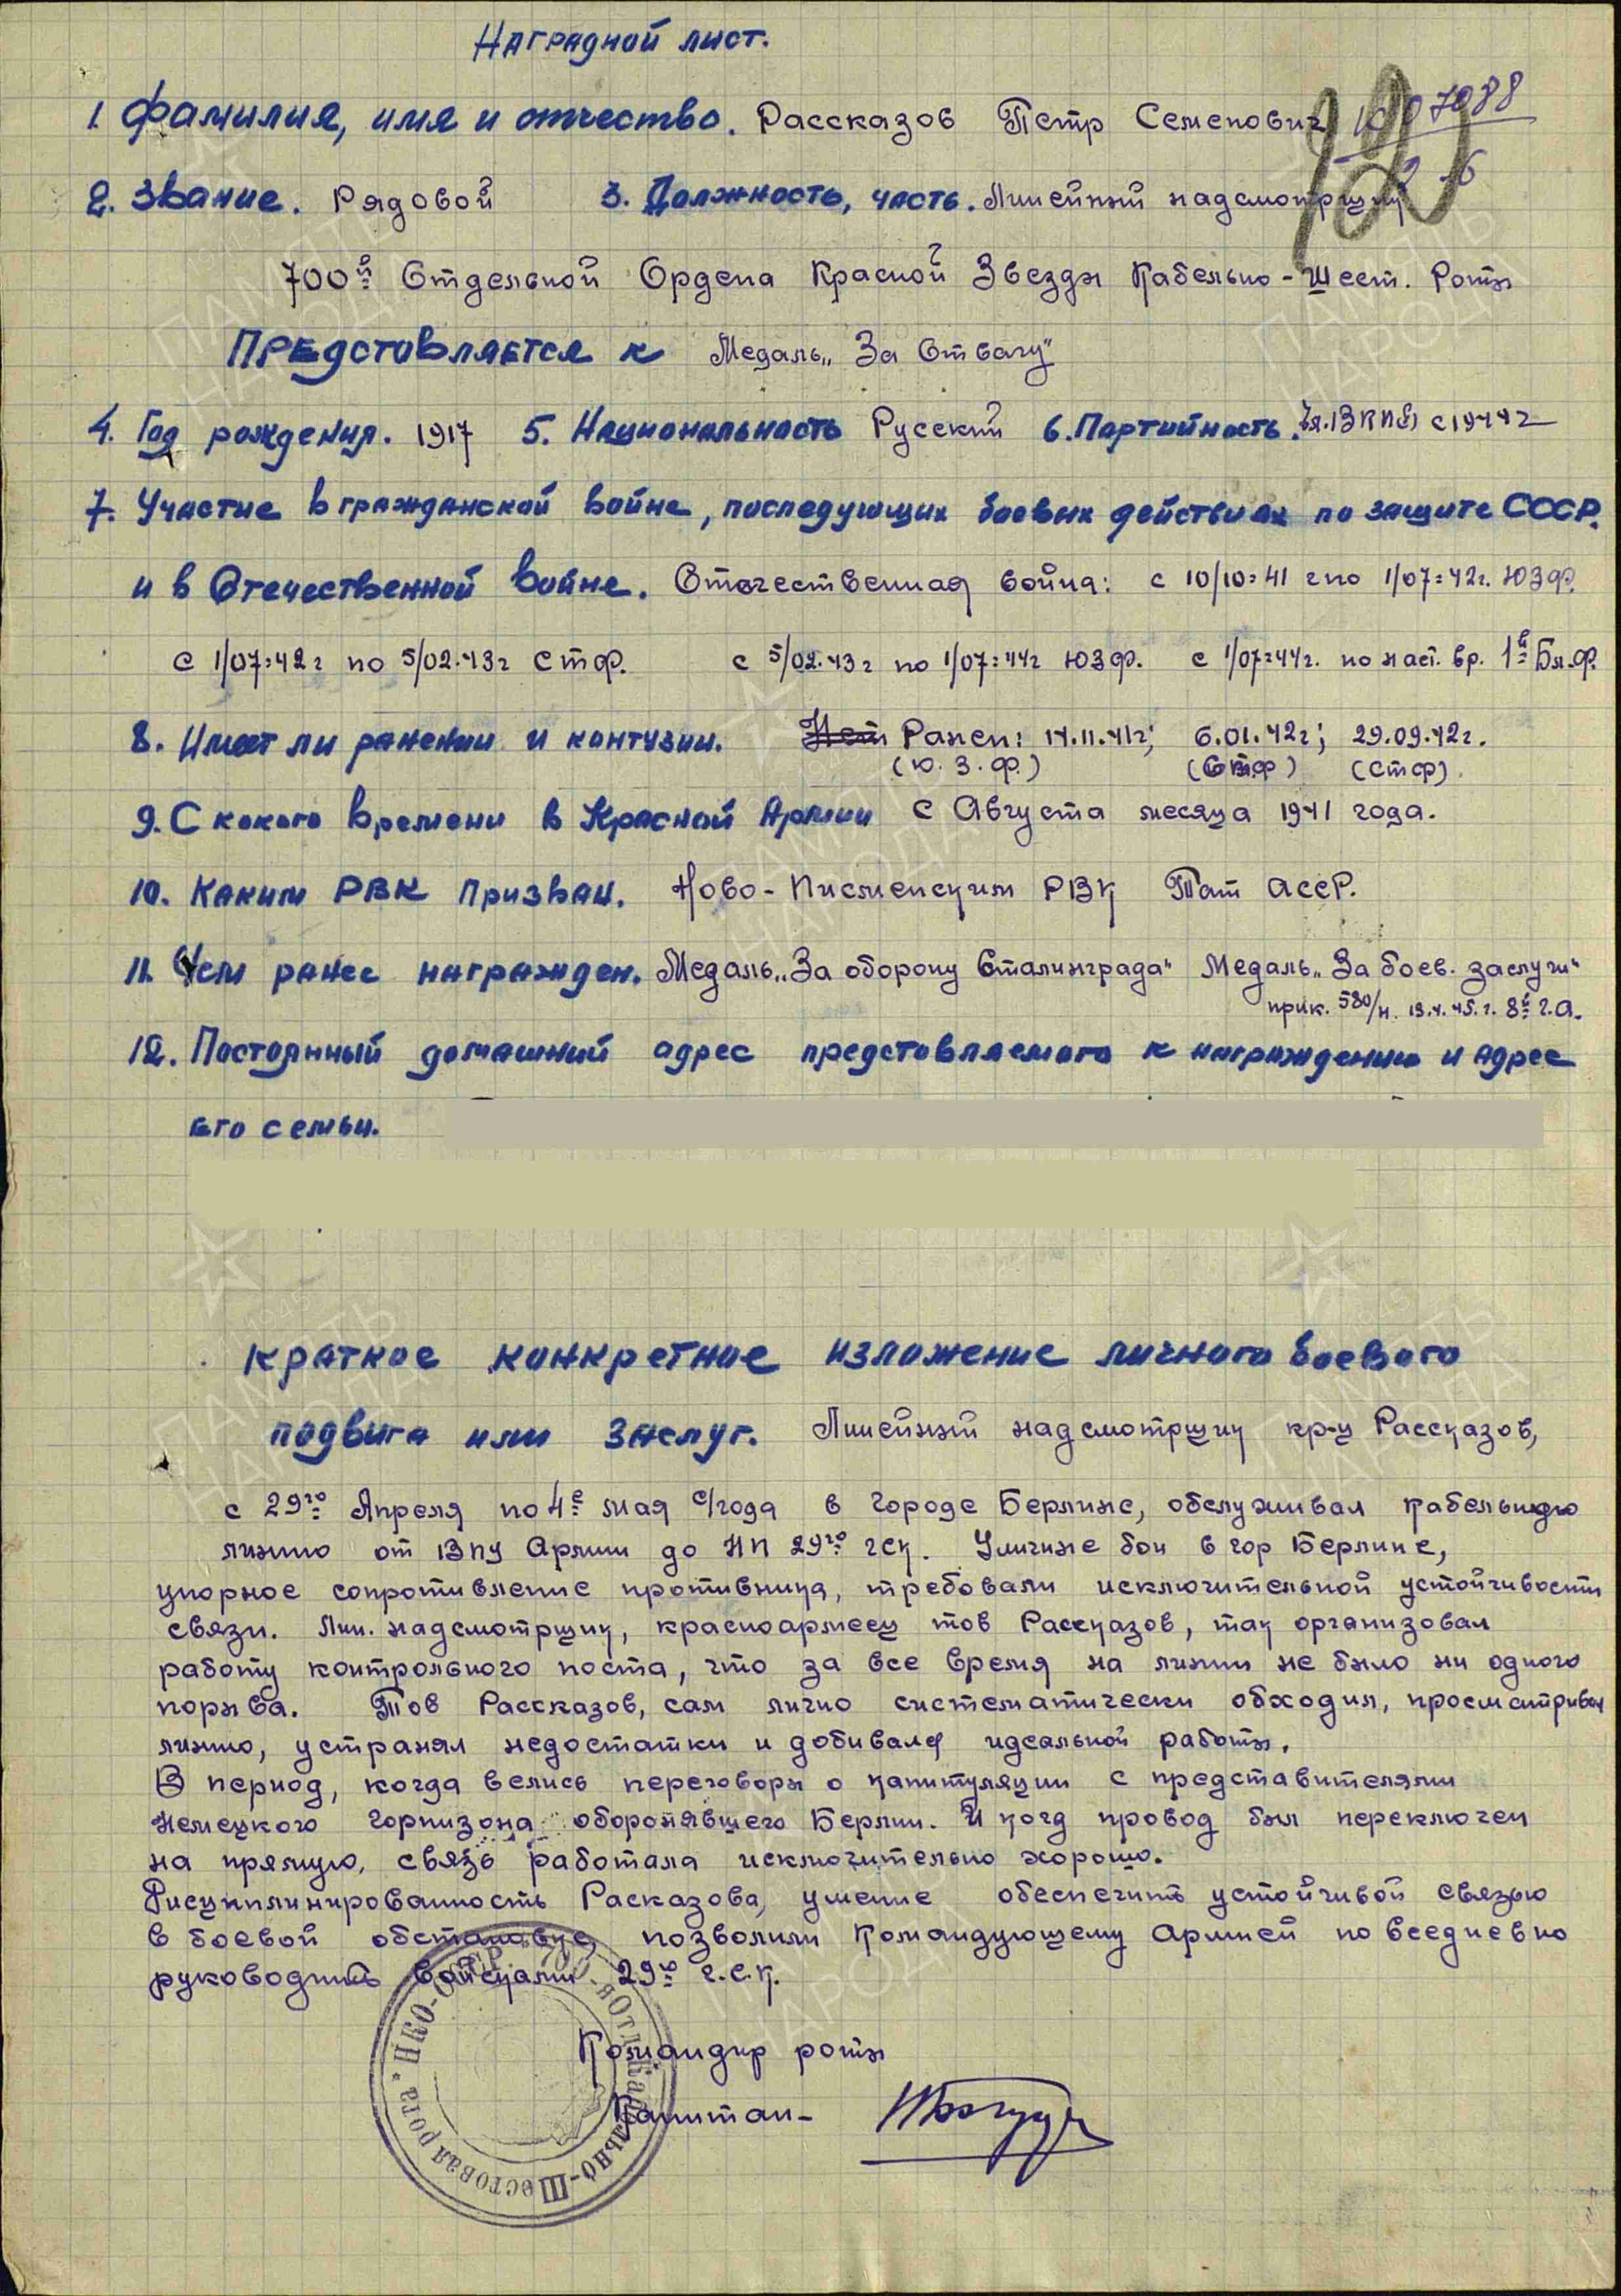 Наградной лист.
1. Фамилия, имя и отчество. Рассказов Петр Семенович
2. Звание. Рядовой 3. Должность, часть. Линейный надсмотрщик
700й Отдельной Ордена Красной Звезды Кабельно-Шест. Роты
Представляется к Медаль „За Отвагу"
4. Год рождения. 1917 5. Национальность Русский 6. Партийность. Чл. ВКП(б) с 1944г
7. Участие в гражданской войне, последующих боевых действиях по защите СССР.
и в Отечественной войне. Отечественная война: с 10/10=41 г по 1/07=42г. ЮЗФ.
с 1/07=42г по 5/02.43г СтФ. с 5/02.43г по 1/07=44г ЮЗФ. с 1/07=44г. по наст. вр. 1й Бл.Ф.
8. Имеет ли ранении и контузии. Нет Ранен: 14.11.41г; 6.01.42г; 29.09.42г.
(Ю.З.Ф.) (СтФ)
9. С какого времени в Красной Армии с Августа месяца 1941 года.
10. Каким РВК призван. Ново-Письменским РВК Тат АССР.
11. Чем ранее награжден. Медаль „За оборону Сталинграда" Медаль „За боев. заслуги"
прик. 580/н. 13.4.45.г. 8й г.А.
12. Постоянный домашний адрес представляемого к награждению и адрес
его семьи.
Краткое конкретное изложение личного боевого
подвига или заслуг. Линейный надсмотрщик кр-ц Рассказов,
с 29го Апреля по 4е мая с/года в городе Берлине, обслуживал кабельную
линию от ВПУ Армии до НП 29го гск. Уличные бои в гор Берлине,
упорное сопротивление противника, требовали исключительной устойчивости
связи. Лин. надсмотрщик, красноармеец тов Рассказов, так организовал
работу контрольного поста, что за все время на линии не было ни одного
порыва. Тов Рассказов, сам лично систематически обходил, просматривал
линию, устранял недостатки и добивался идеальной работы.
В период, когда велись переговоры о капитуляции с представителями
Немецкого Гарнизона оборонявшего Берлин. И когд провод был переключен
на прямую, связь работала исключительно хорошо.
Дисциплинированность Расказова, умение обеспечить устойчивой связью
в боевой обстановке, позволили Командующему Армией повседневно
руководить войсками 29го г.с.к.
Командир роты
Капитан-
НКО-СССР * 700-я Отд. Кабельно-Шестовая рота *